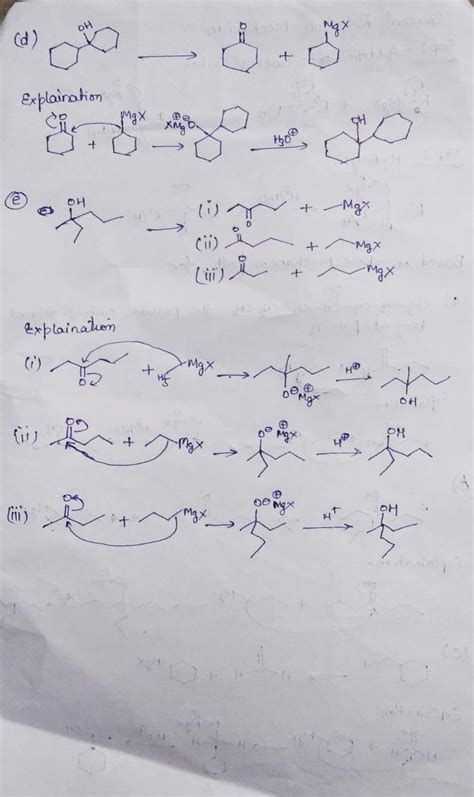 (d) OH → O + MgX
Explaination
O + MgX → XMg⊕ ⊖O H3O⊕ → OH
(e) OH → (i) O + MgX
(ii) O + MgX
(iii) O + MgX
Explaination
(i) O + MgX → O⊖ ⊕MgX H⊕ → OH
(ii) O + MgX → O⊖ ⊕MgX H⊕ → OH
(iii) O + MgX → O⊖ ⊕MgX H+ → OH